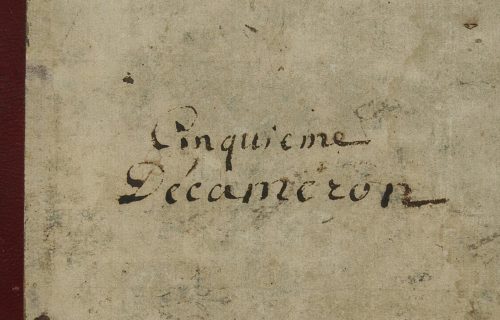 Cinquieme
Décaméron